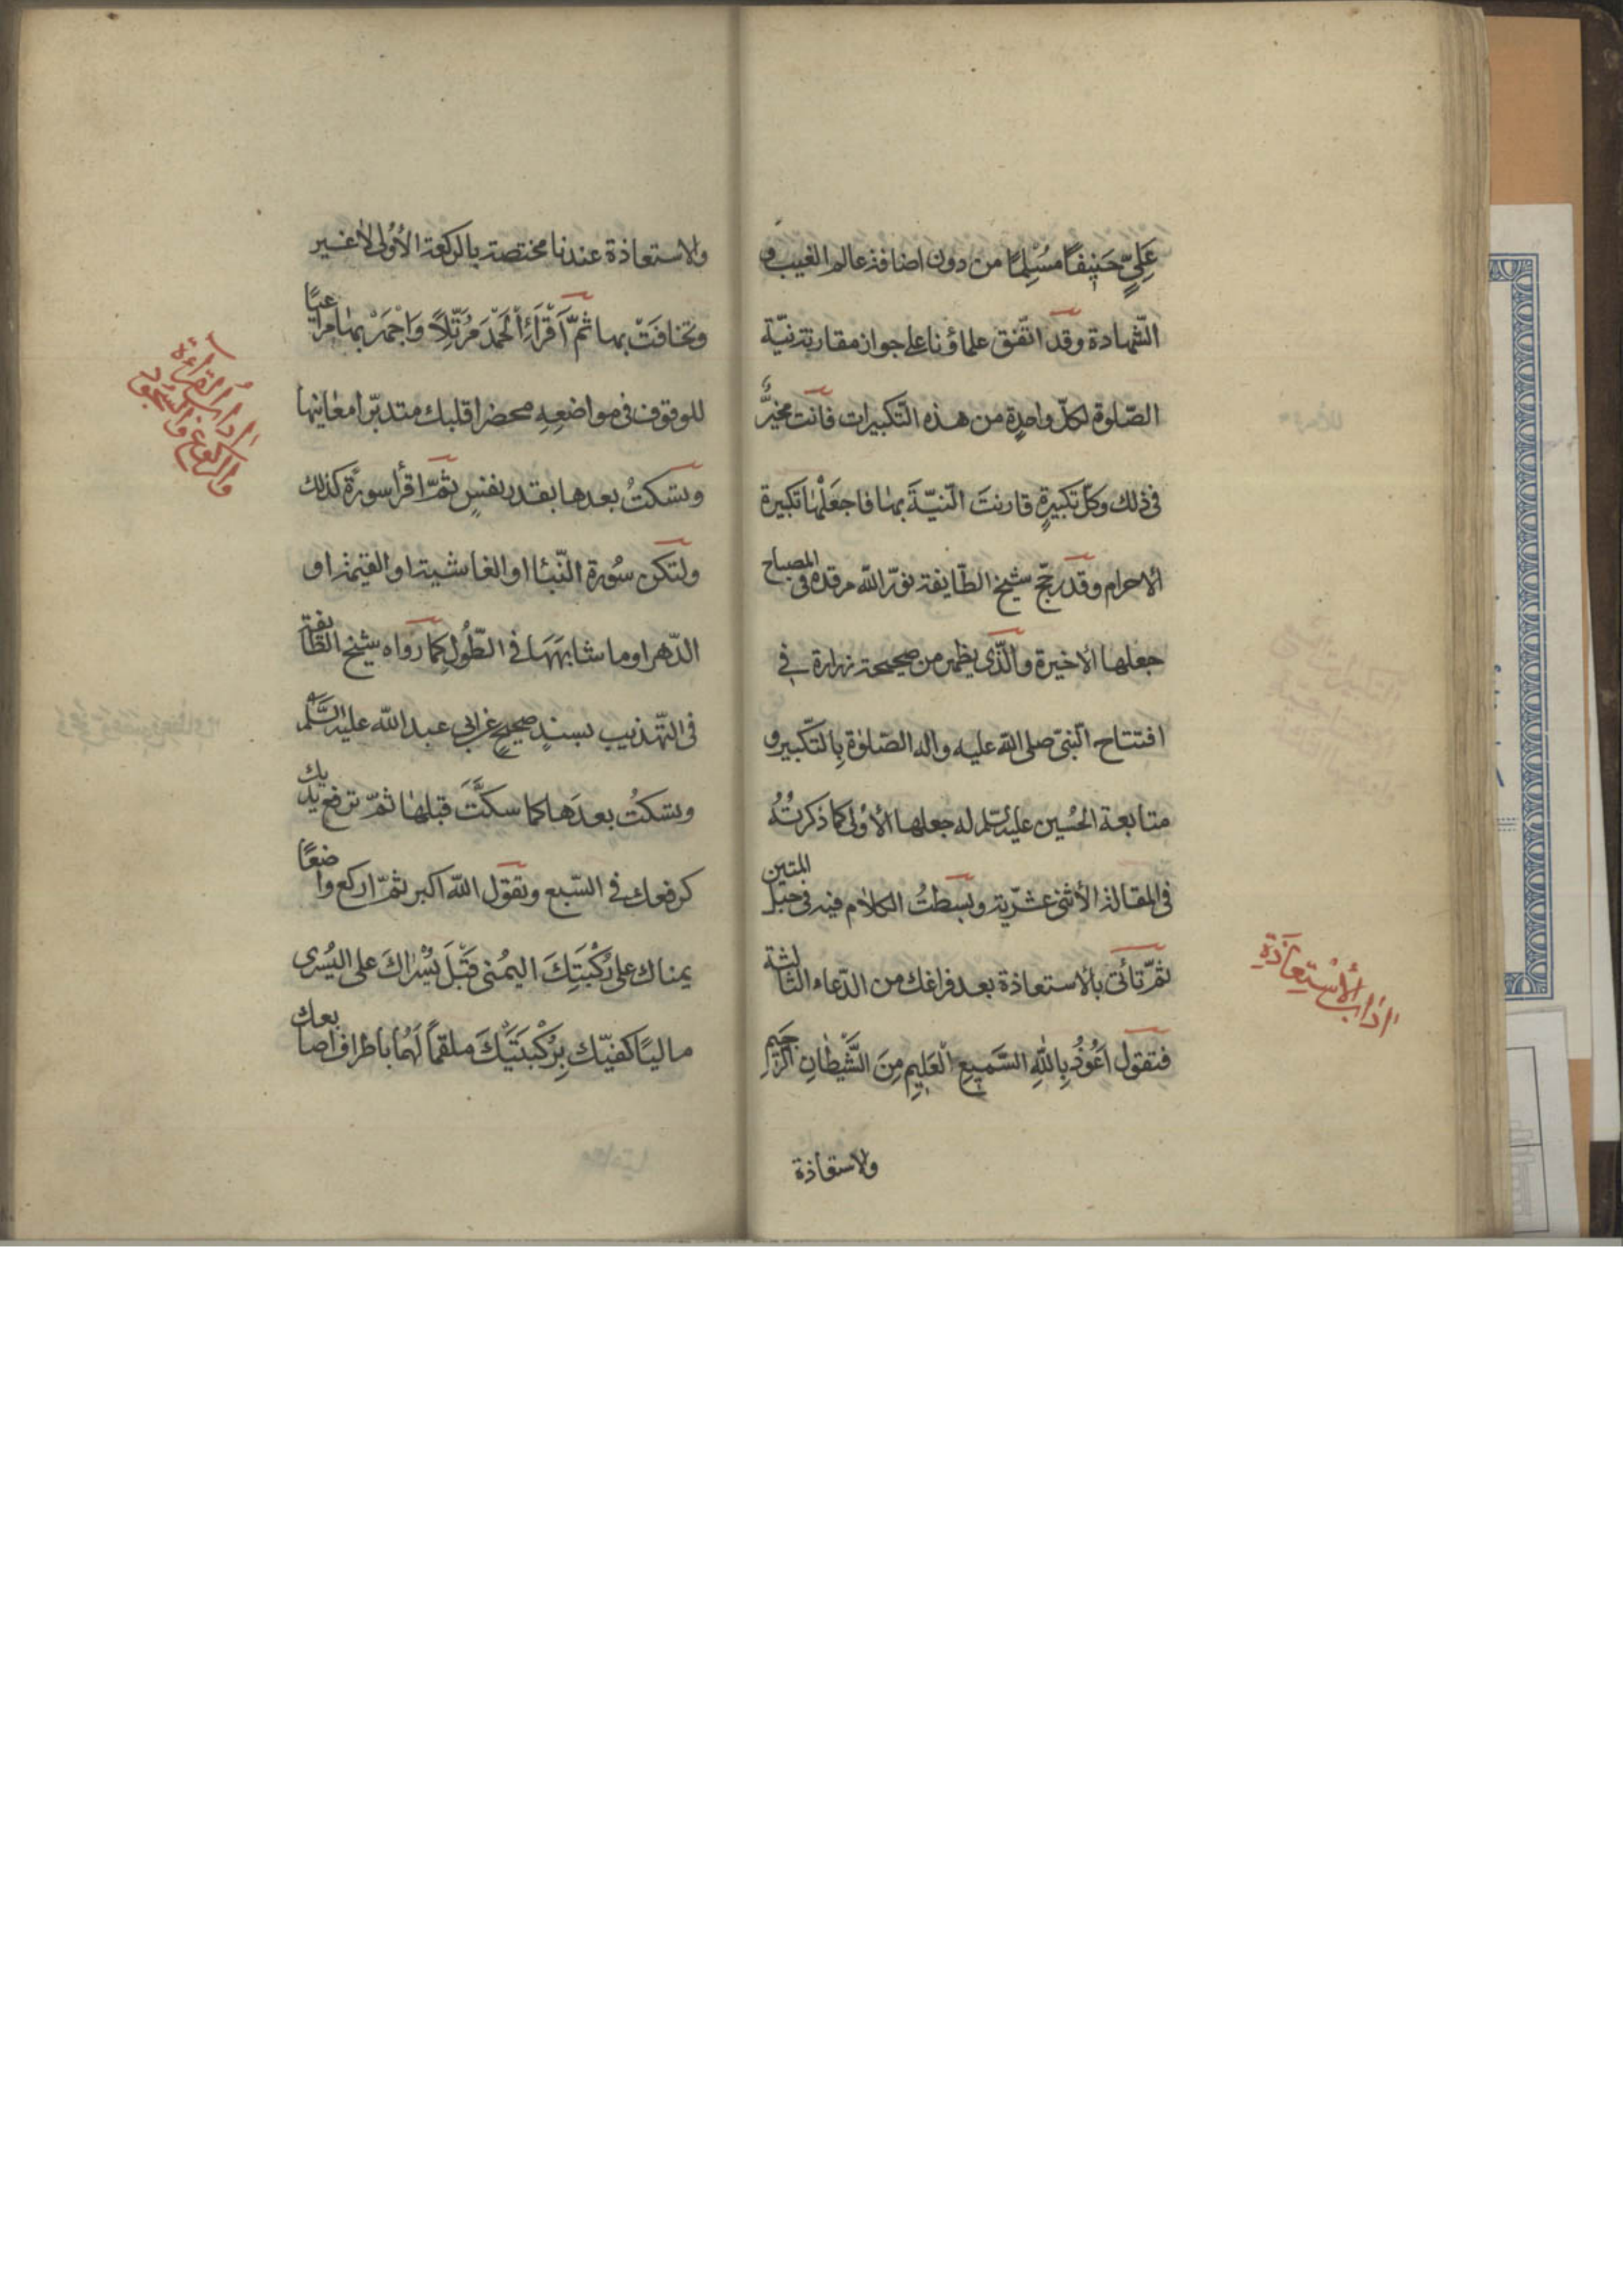 عَلِيٍّ حَنِيفًا مُسْلِمًا من دون اضافة عالم الغيب و
الشّهادة وقد اتّفق علماؤنا على جواز مقارنة نيّة
الصّلوة لكلّ واحدةٍ من هذه التّكبيرات فانت مخيّرٌ
فى ذلك وكلّ تكبيرةٍ قارنتَ النّيّةَ بها فاجعَلْهٰا تكبيرة
الاحرام وقد رجّح شيخ الطّايفة نوّر الله مرقده فى المصباح
جعلها الاخيرة والّذى يظهر من صحيحة زرارة فى
افتتاح النّبىّ صلى الله عليه واله الصّلوٰة بالتّكبير و
متابعة الحُسين عليه السلم له جعلها الأولى كما ذكرتُهُ
فى المقالة الأثنى عشريّة وبسطتُ الكلام فيه فى حبل المتين
ثمّ تأتى بالاستعاذة بعد فراغك من الدّعاء الثالثة
فتقول اَعُوذُ بِاللهِ السَّمِيعِ الْعَلِيمِ مِنَ الشَّيْطٰانِ الرَّجِيمِ
ولاستعاذة
اداب الأسْتِعاذَةِ
ولاستعاذة عندنا مختصة بالركعة الأولى لا غير
وتخافَتْ بها ثمّ اَقْرَاءِ اْلحَمْدَ مُرَتِّلاً وَاجْهَرْ بهٰا مراعيًا
للوقوف فى مواضعِهِ محضرا قلبك متدبّرا معٰانيها
وتسكتُ بعدها بقدر نفسٍ ثمّ اقرأ سورةً كذلك
ولتكن سُورة النّبأ او الغاشية او القيمة او
الدّهر او ما شابهَهَا فى الطّولِ كما رَوٰاه شيخ الطّايفة
فى التّهذيب بسندٍ صحيحٍ عن ابى عبد الله عليه السّلم
وتسكتُ بعدَها كما سكتَّ قبلهٰا ثمّ ترفع يديك
كرفعك فى السّبع وتقول الله اكبر ثمّ اركع واضعًا
يمناك على رُكْبَتِكَ اليمُنى قَبْلَ يُسْرٰاكَ على اليُسرى
ماليًا كفيّك بِرُكْبَتَيْكَ ملقمًا لَهُما باطراف اصابعك
اداب القراءة
والركوع والسّجُود